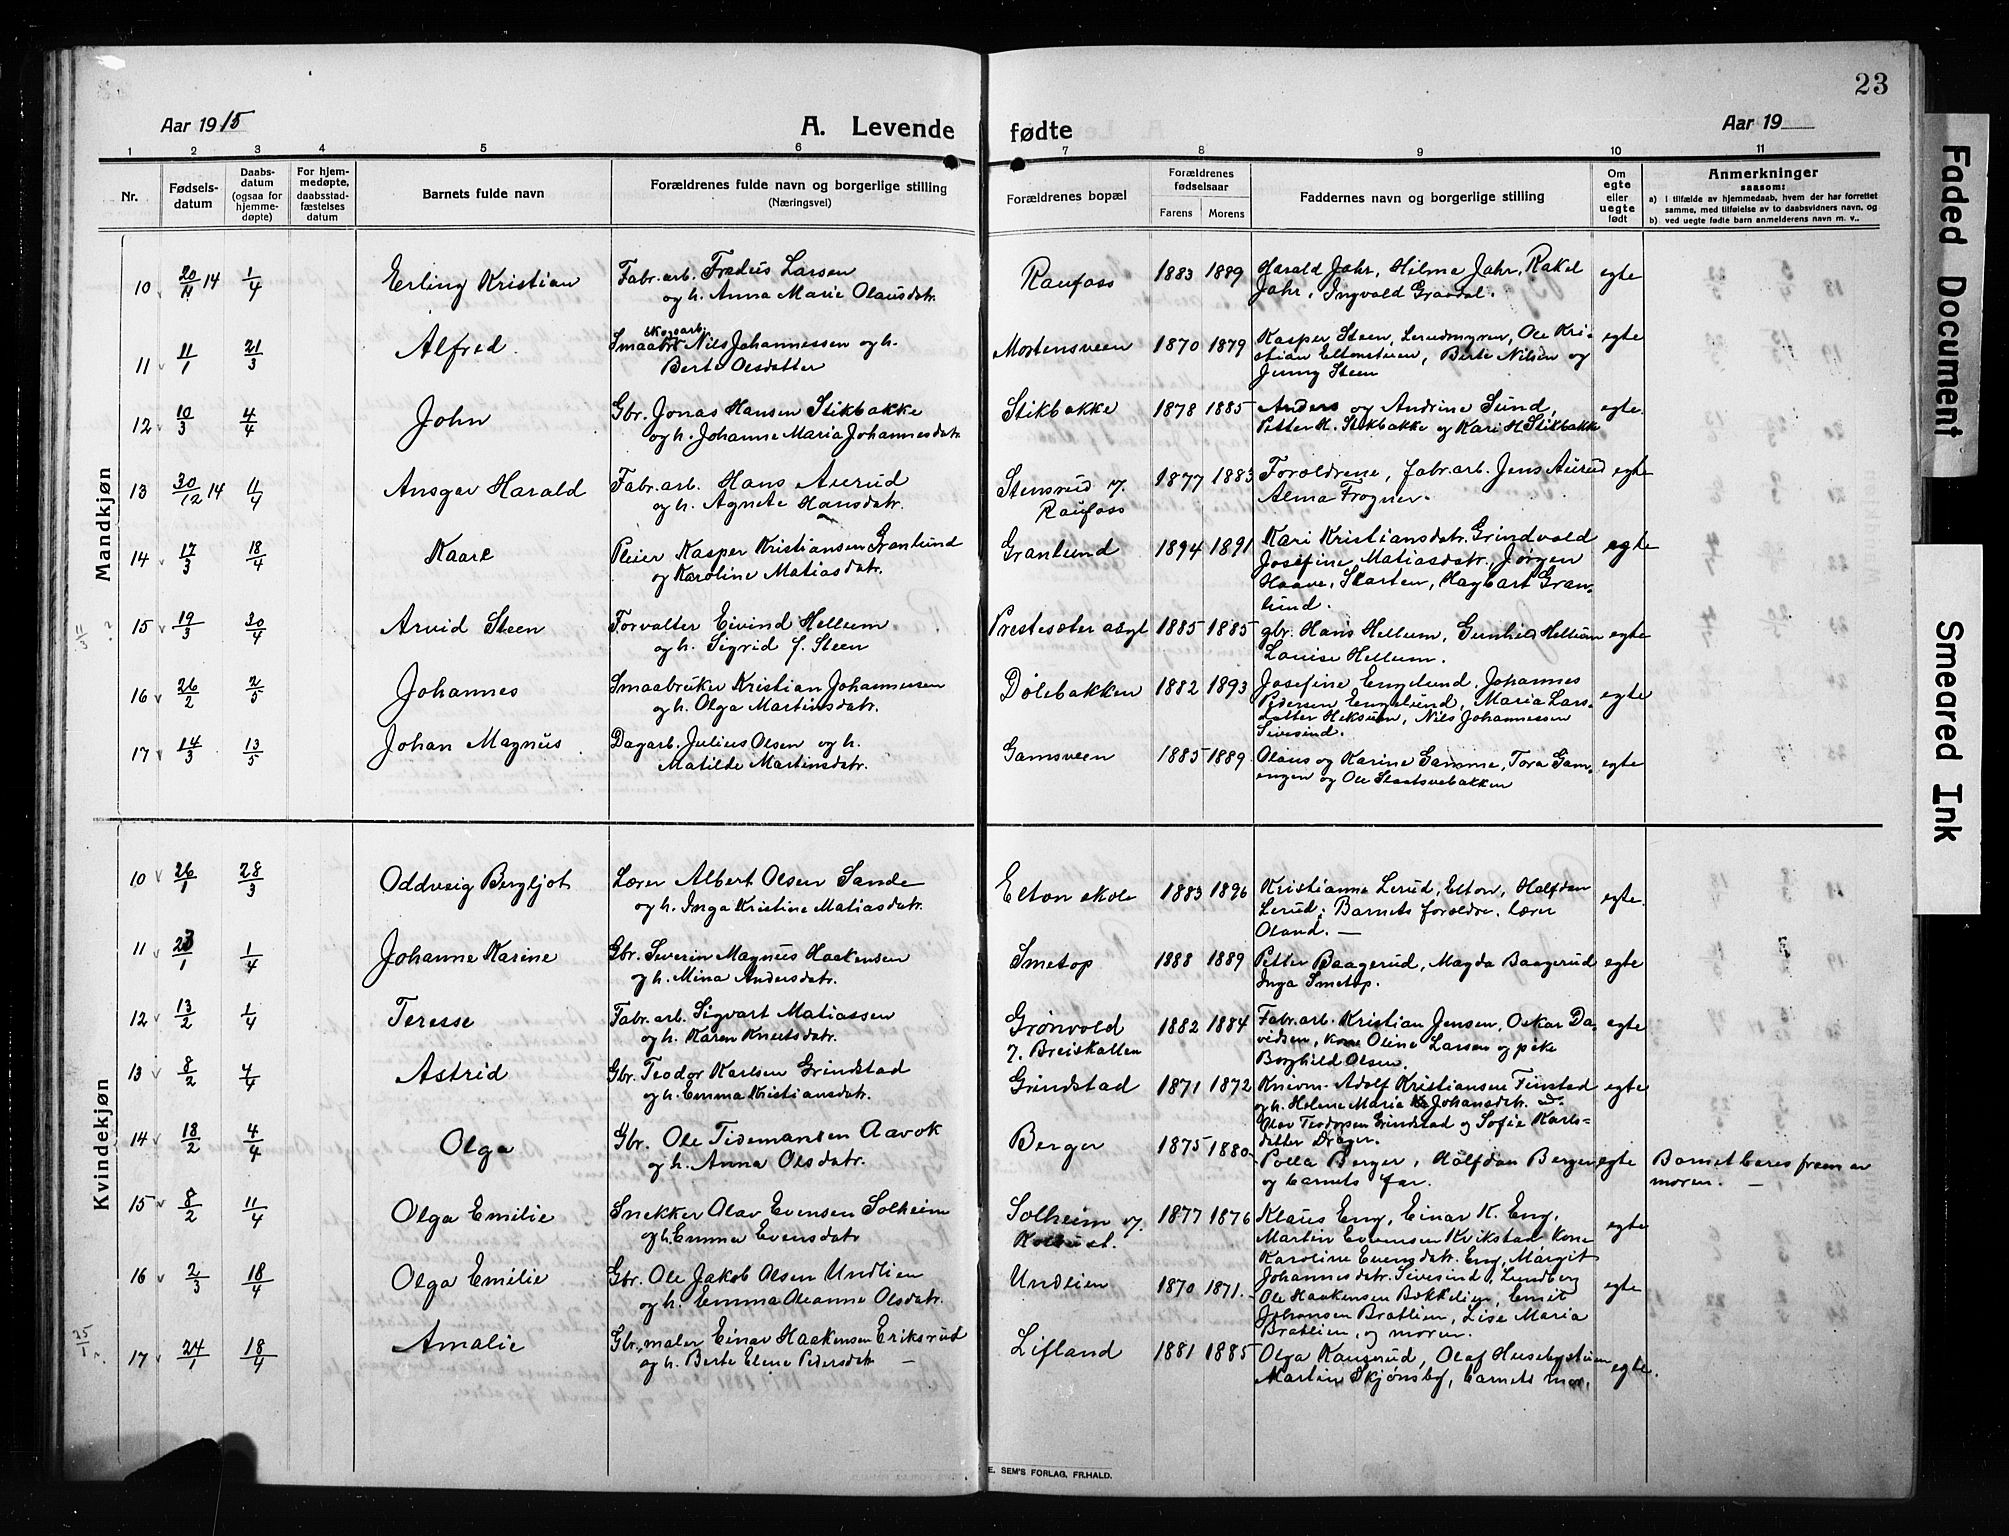 23
Aar 1915
A. Levende fødte
Aar 19
1 2 3 4 5 6 7 8 9 10 11
Nr.
Fødsels-
datum
Daabs-
datum
(ogsaa for
hjemme-
døpte)
For hjem-
medøpte,
daabsstad-
fæstelses
datum
Barnets fulde navn
Forældrenes fulde navn og borgerlige stilling
(Næringsvei)
Forældrenes bopæl
Forældrenes
fødselsaar
Farens Morens
Faddernes navn og borgerlige stilling
Om
egte
eller
uegte
født
Anmerkninger
saasom:
a) I tilfælde av hjemmedaab, hvem der har forrettet
samme, med tilføielse av to daabsvidners navn, og
b) ved uegte fødte barn anmelderens navn m. v..
Mandkjøn
10 20/11 14 1/4 Erling Kristian Fabr. arb. Fredeus Larsen Raufoss 1883 1889 Harald Jahr, Hilma Jahr, Rakel egte
og h. Anna Marie Olausdatr. Jahr, Ingvald Graadal.
skogarb.
11 11/1 21/3 Alfred. Smaabr Nils Johannessen og h. Mortensveen 1870 1879 Kasper Steen, Lerudmyren, Ole Kri- egte
Berte Olsdatter stian Eltonsteen, Berte Nilsen og
Jenny Steen
12 10/3 4/4 John Gbr. Jonas Hansen Stikbakke Stikbakke 1878 1885 Anders og Andrine Sund, egte.
og h. Johanne Maria Johannesdatr. Petter H. Stikbakke og Kari H Stikbakke
13 30/12 14 11/4 Ansgar Harald Fabr. arb. Hans Aurud Stensrud 7. 1877 1883 Forældrene, fabr. arb. Jens Aurud egte
og h. Agnete Hansdatr. Raufoss Alma Frogner.
14 17/3 18/4 Kaare Pleier Kasper Kristiansen Granlund Granlund 1894 1891 Kari Kristiansdatr. Grindvold egte
og Karoline Matiasdatr. Josefine Matiasdatr., Jørgen
Haave, Skarten, Hagbart Gran-
lund.
15 19/3 30/4 Arvid Steen Forvalter Eivind Hellum Prestesæter asyl 1885 1885 gbr. Hans Hellum, Gunhild Hellum egte
og h. Sigrid f. Steen Louise Hellum.
16 26/2 2/5 Johannes Smaabruker Kristian Johannesen Dølebakken 1882 1893 Josefine Englund, Johannes egte
og h. Olga Martinsdatr. Pedersen Englund, Maria Lars-
datter Heksum, Nils Johannessen
Sivesind.
17 14/3 13/5 Johan Magnus Dagarb. Julius Olsen og h. Gamsveen 1885 1889 Olaus og Karine Gamme, Tora Gam- egte
Matilde Martinsdatr. engen og Ole Staatsvebakken
Kvindekjøn
10 26/1 28/3 Oddveig Bergljot Lærer Albert Olsen Sande Elton skole 1883 1896 Kristianne Lerud, Elton, Halfdan egte.
og h. Inga Kristine Matiasdatr. Lerud, Barnets forældre, lærer
Oland. —
11 23/1 1/4 Johanne Karine Gbr. Severin Magnus Haakensen Smetop 1888 1889 Petter Baagerud, Magda Baagerud egte
og h. Mina Andersdatr. Inga Smetop.
12 13/2 1/4 Teresse Fabr. arb. Sigvart Matiassen Grønvold 1882 1884 Fabr. arb. Kristian Jensen, Oskar Da- egte
og h. Karen Knutsdatr. 7. Breiskallen vidsen, kone Oline Larsen og pike
Borghild Olsen.
13 8/2 4/4 Astrid Gbr. Teodor Karlsen Grindstad Grindstad 1871 1872 Adolf Kristiansen Finstad egte
og h. Emma Kristiansdatr. og h. Helene Marie Johansdatr.
Olav Teodorsen Grindstad og Sofie Karls-
datter Drager.
14 18/2 4/4 Olga Gbr. Ole Tidemansen Aavok Berger 1875 1880 Polla Berger, Halfdan Berger egte Barnet bares frem av
og h. Anna Olsdatr. og barnets far. moren. —
15 8/2 11/4 Olga Emilie Snekker Olav Evensen Solheim Solheim 7. 1877 1876 Klaus Eng, Einar K. Eng, egte
og h. Emma Evensdatr Martin Evensen Kvikstad kone
Karoline Evensdatr. Eng, Margit
16 2/3 18/4 Olga Emilie Gbr. Ole Jakob Olsen Undlien Undlien 1870 1871. Johannesdatr. Sivesind, Lundberg egte
og h. Emma Oleanne Olsdatr. Ole Haakensen Bakkelien, Emil
Johansen Bratlien, Lise Maria
Bratlien, og moren.
17 24/1 18/4 Amalie Gbr., maler Einar Haakensen Eriksrud Lifland 1881 1885 Olga Kauserud, Olaf Husebystuen egte.
og h. Berte Elene Pedersdatr. — Martin Skjønsby, barnets mor.
E. SEM'S FORLAG, FR.HALD.
Faded Document
Smeared Ink